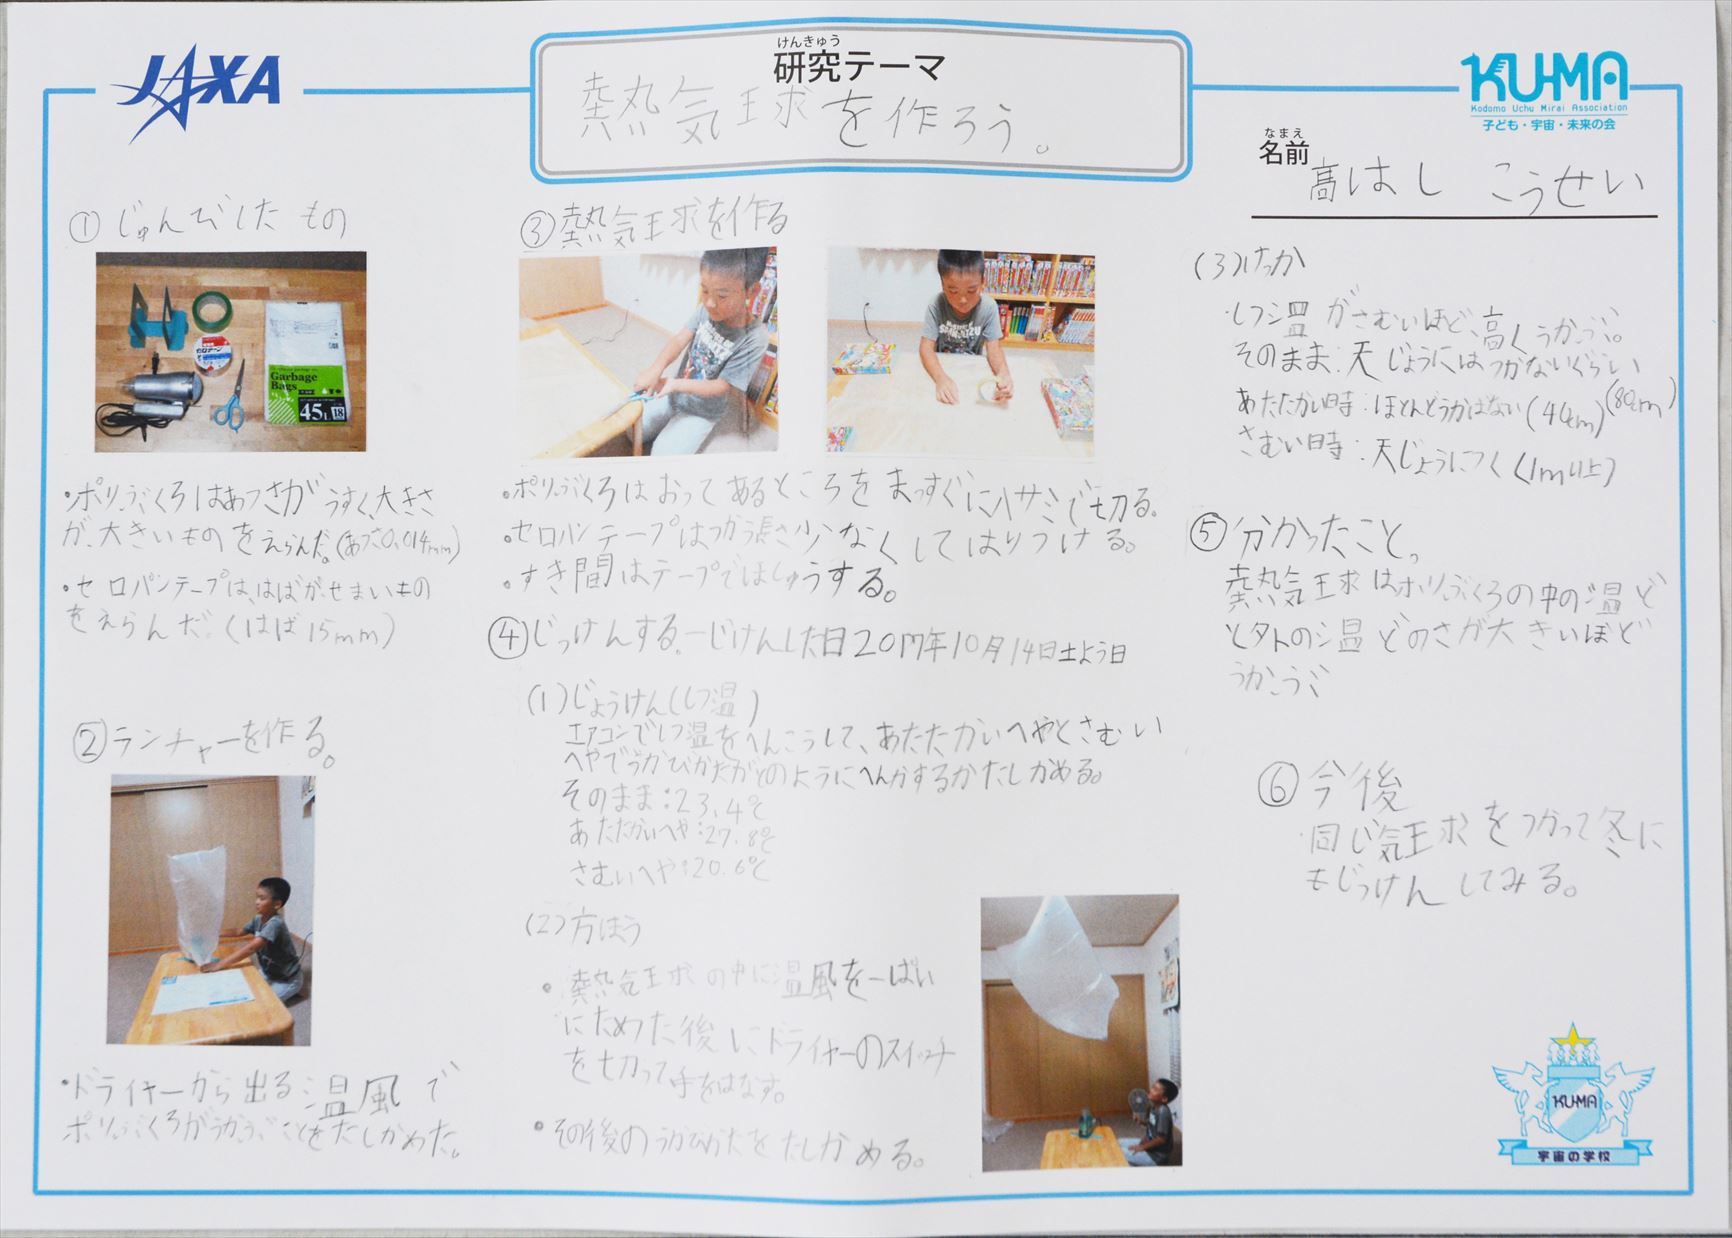 JAXA
けんきゅう
研究テーマ
熱気球を作ろう。
KU-MA
Kodomo Uchu Mirai Association
子ども・宇宙・未来の会
なまえ
名前
高はし こうせい
①じゅんびしたもの
Garbage
Bags
45L 18
・ポリぶくろはあつさがうすく、大きさ
が、大きいものをえらんだ。(あつさ0.014mm)
・セロハンテープは、はばがせまいもの
をえらんだ。(はば15mm)
②ランチャーを作る。
・ドライヤーから出る温風で
ポリぶくろがうかぶことをたしかめた。
③熱気球を作る
・ポリぶくろはおってあるところをまっすぐにハサミで切る。
・セロハンテープはつかう長さ少なくしてはりつける。
・すき間はテープでほしゅうする。
④じっけんする。ーじけんした日2017年10月14日土よう日
(1)じょうけん(しつ温)
エアコンでしつ温をへんこうして、あたたかいへやとさむい
へやでうかびかたがどのようにへんかするかたしかめる。
そのまま:23.4℃
あたたかいへや:27.8℃
さむいへや:20.6℃
(2)方ほう
・熱気球の中に温風を一ぱい
にためた後にドライヤーのスイッチ
を切って手をはなす。
・その後のうかびかたをたしかめる。
(3)けっか
・しつ温がさむいほど、高くうかぶ。
そのまま:天じょうにはつかないぐらい
(80cm)
あたたかい時:ほとんどうかばない(40cm)
さむい時:天じょうにつく(1m以上)
⑤分かったこと。
熱気球はポリぶくろの中の温ど
と外の温どのさが大きいほど
うかぶ
⑥今後
同じ気球をつかって冬に
もじっけんしてみる。
KU-MA
宇宙の学校